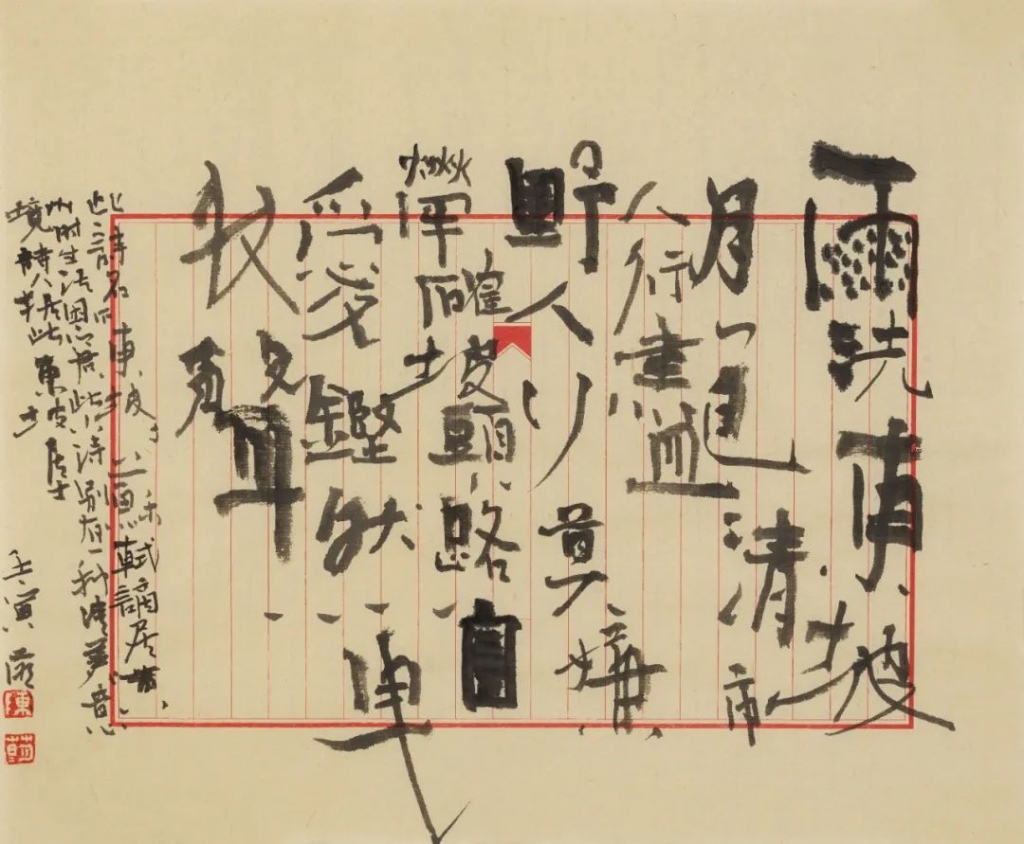 雨洗東坡
月色清市
人行盡
野人行莫嫌
犖確坡頭路自
愛鏗然曳
杖聲
此詩名曰東坡軾謫居黃
州時生活此詩別有一種清美意
境詩人此東坡居士
壬寅
陳